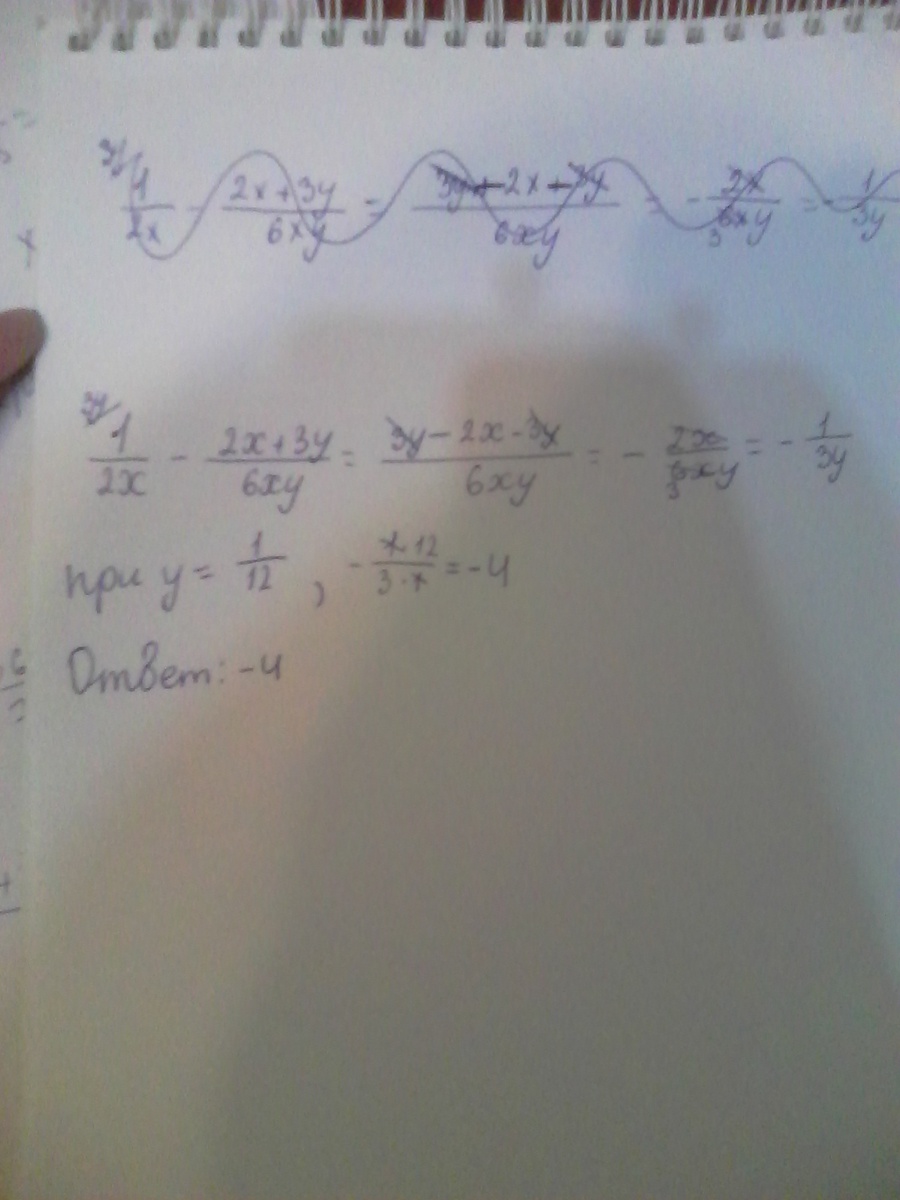 3y/ 1/2x - 2x+3y/6xy = 3y+-2x+-3y/6xy = -2x/6xy 3 = -1/3y
3y/ 1/2x - 2x+3y/6xy = 3y-2x-3y/6xy = - 2x/6xy 3 = - 1/3y
при y = 1/12 , - x·12/3·x = -4
Ответ: -4